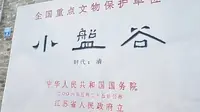 全国重点文物保护单位
小盤谷
时代：清
中华人民共和国国务院
江苏省人民政府立